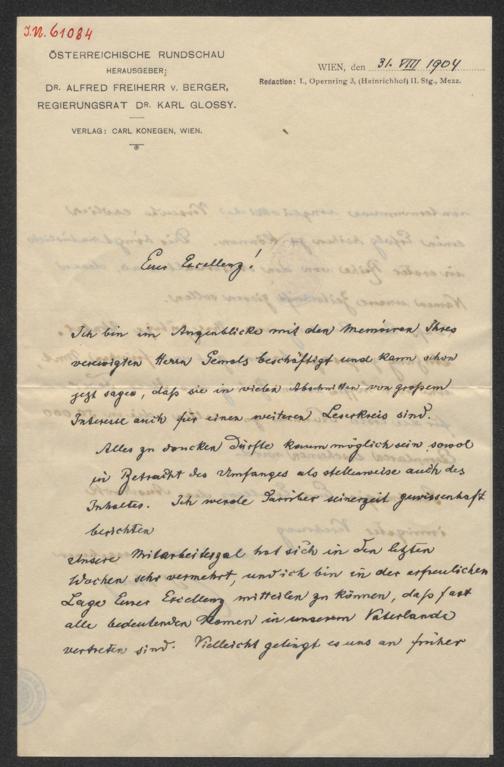 I.N. 61084
ÖSTERREICHISCHE RUNDSCHAU
HERAUSGEBER:
DR. ALFRED FREIHERR v. BERGER,
REGIERUNGSRAT DR. KARL GLOSSY.
VERLAG: CARL KONEGEN, WIEN.
WIEN, den 31. VIII 1904
Redaction: I., Opernring 3, (Heinrichhof) II. Stg., Mezz.
Euer Excellenz!
Ich bin im Augenblicke mit den Memoiren Ihres
verewigten Herrn Gemals beschäftigt und kann schon
jetzt sagen, daß sie in vielen Abschnitten von großem
Interesse auch für einen weiteren Leserkreis sind.
Alles zu drucken dürfte kaum möglich sein sowol
in Betracht des Umfanges als stellenweise auch des
Inhaltes. Ich werde darüber seinerzeit gewissenhaft
berichten
Unsere Mitarbeiterzal hat sich in den letzten
Wochen sehr vermehrt, und ich bin in der erfreulichen
Lage Euer Excellenz mitteilen zu können, daß fast
alle bedeutenden Namen in unserem Vaterlande
vertreten sind. Vielleicht gelingt es uns an früher